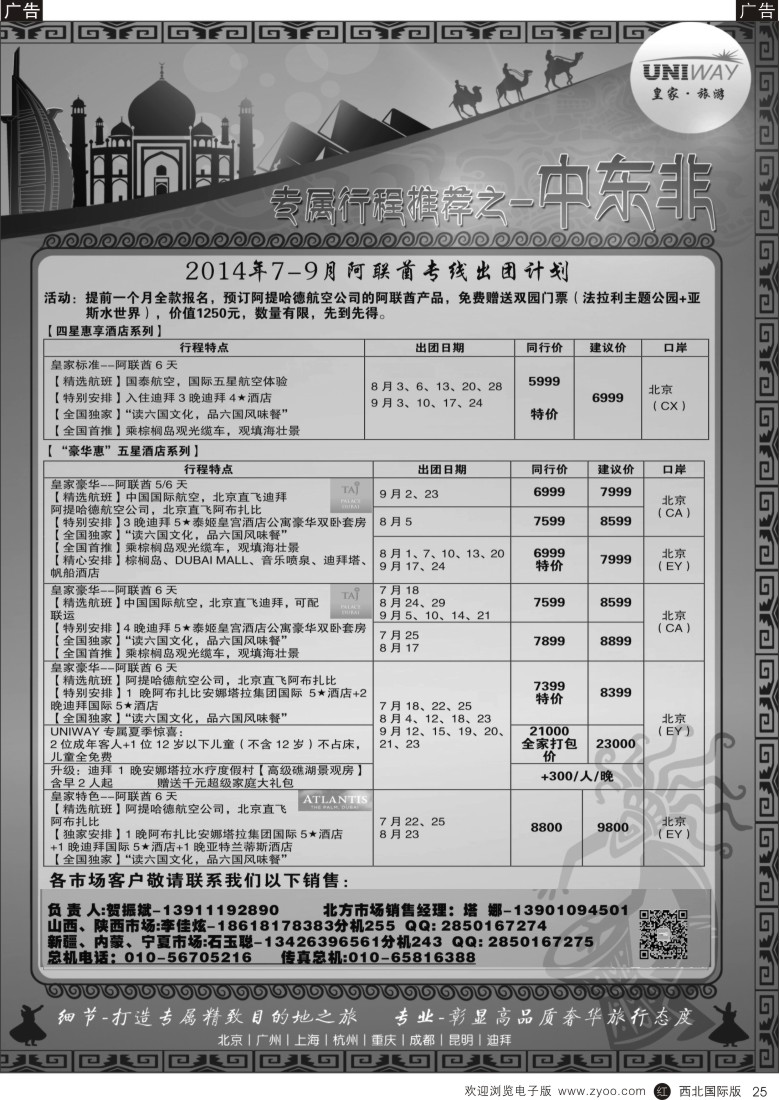 广告
广告
UNIWAY
皇家·旅游
专属行程推荐之一中东非
2014年7-9月阿联酋专线出团计划
活动：提前一个月全款报名，预订阿提哈德航空公司的阿联酋产品，免费赠送双园门票（法拉利主题公园+亚
斯水世界），价值1250元，数量有限，先到先得。
【四星惠享酒店系列】
行程特点 出团日期 同行价 建议价 口岸
皇家标准--阿联酋 6 天
【精选航班】国泰航空，国际五星航空体验
【特别安排】入住迪拜 3 晚迪拜 4★酒店
【全国独家】“读六国文化，品六国风味餐”
【全国首推】乘棕榈岛观光缆车，观填海壮景
8 月 3、6、13、20、28
9 月 3、10、17、24
5999
特价
6999
北京
（CX）
【 “豪华惠” 五星酒店系列】
行程特点 出团日期 同行价 建议价 口岸
皇家豪华--阿联酋 5/6 天
【精选航班】中国国际航空，北京直飞迪拜
阿提哈德航空公司，北京直飞阿布扎比
【特别安排】3 晚迪拜 5★泰姬皇宫酒店公寓豪华双卧套房
【全国独家】“读六国文化，品六国风味餐”
【全国首推】乘棕榈岛观光缆车，观填海壮景
【精心安排】棕榈岛、DUBAI MALL、音乐喷泉、迪拜塔、
帆船酒店
TAJ
PALACE
DUBAI
9 月 2、23 6999 7999
8 月 5 7599 8599
北京
（CA）
8 月 1、7、10、13、20
9 月 17、24
6999
特价
7999
北京
（EY）
皇家豪华--阿联酋 6 天
【精选航班】中国国际航空，北京直飞迪拜，可配
联运
【特别安排】4 晚迪拜 5★泰姬皇宫酒店公寓豪华双卧套房
【全国独家】“读六国文化，品六国风味餐”
【全国首推】乘棕榈岛观光缆车，观填海壮景
TAJ
PALACE
DUBAI
7 月 18
8 月 24、29
9 月 5、10、14、21
7599 8599
7 月 25
8 月 17
7899 8899
北京
（CA）
皇家豪华--阿联酋 6 天
【精选航班】阿提哈德航空公司，北京直飞阿布扎比
【特别安排】1 晚阿布扎比安娜塔拉集团国际 5★酒店+2
晚迪拜国际 5★酒店
【全国独家】“读六国文化，品六国风味餐”
7 月 18、22、25
8 月 4、12、18、23
9 月 12、15、19、20、
21、23
7399
特价
8399
北京
（EY）
UNIWAY 专属夏季惊喜：
2 位成年客人+1 位 12 岁以下儿童（不含 12 岁）不占床，
儿童全免费
21000
全家打包
价
23000
升级：迪拜 1 晚安娜塔拉水疗度假村【高级礁湖景观房】
含早 2 人起 赠送千元超级家庭大礼包
+300/人/晚
皇家特色--阿联酋 6 天
【精选航班】阿提哈德航空公司，北京直飞
阿布扎比
【独家安排】1 晚阿布扎比安娜塔拉集团国际 5★酒店
+1 晚迪拜国际 5★酒店+1 晚亚特兰蒂斯酒店
【全国独家】“读六国文化，品六国风味餐”
ATLANTIS
THE PALM, DUBAI
7 月 22、25
8 月 23
8800 9800
北京
（EY）
各市场客户敬请联系我们以下销售：
负 责 人:贺振斌-13911192890 北方市场销售经理：塔 娜-13901094501
山西、陕西市场:李佳炫-18618178383分机255 QQ: 2850167274
新疆、内蒙、宁夏市场:石玉聪-13426396561分机243 QQ: 2850167275
总机电话：010-56705216 传真总机:010-65816388
细节-打造专属精致目的地之旅 专业-彰显高品质奢华旅行态度
北京｜广州｜上海｜杭州｜重庆｜成都｜昆明｜迪拜
欢迎浏览电子版 www.zyoo.com 红 西北国际版 25